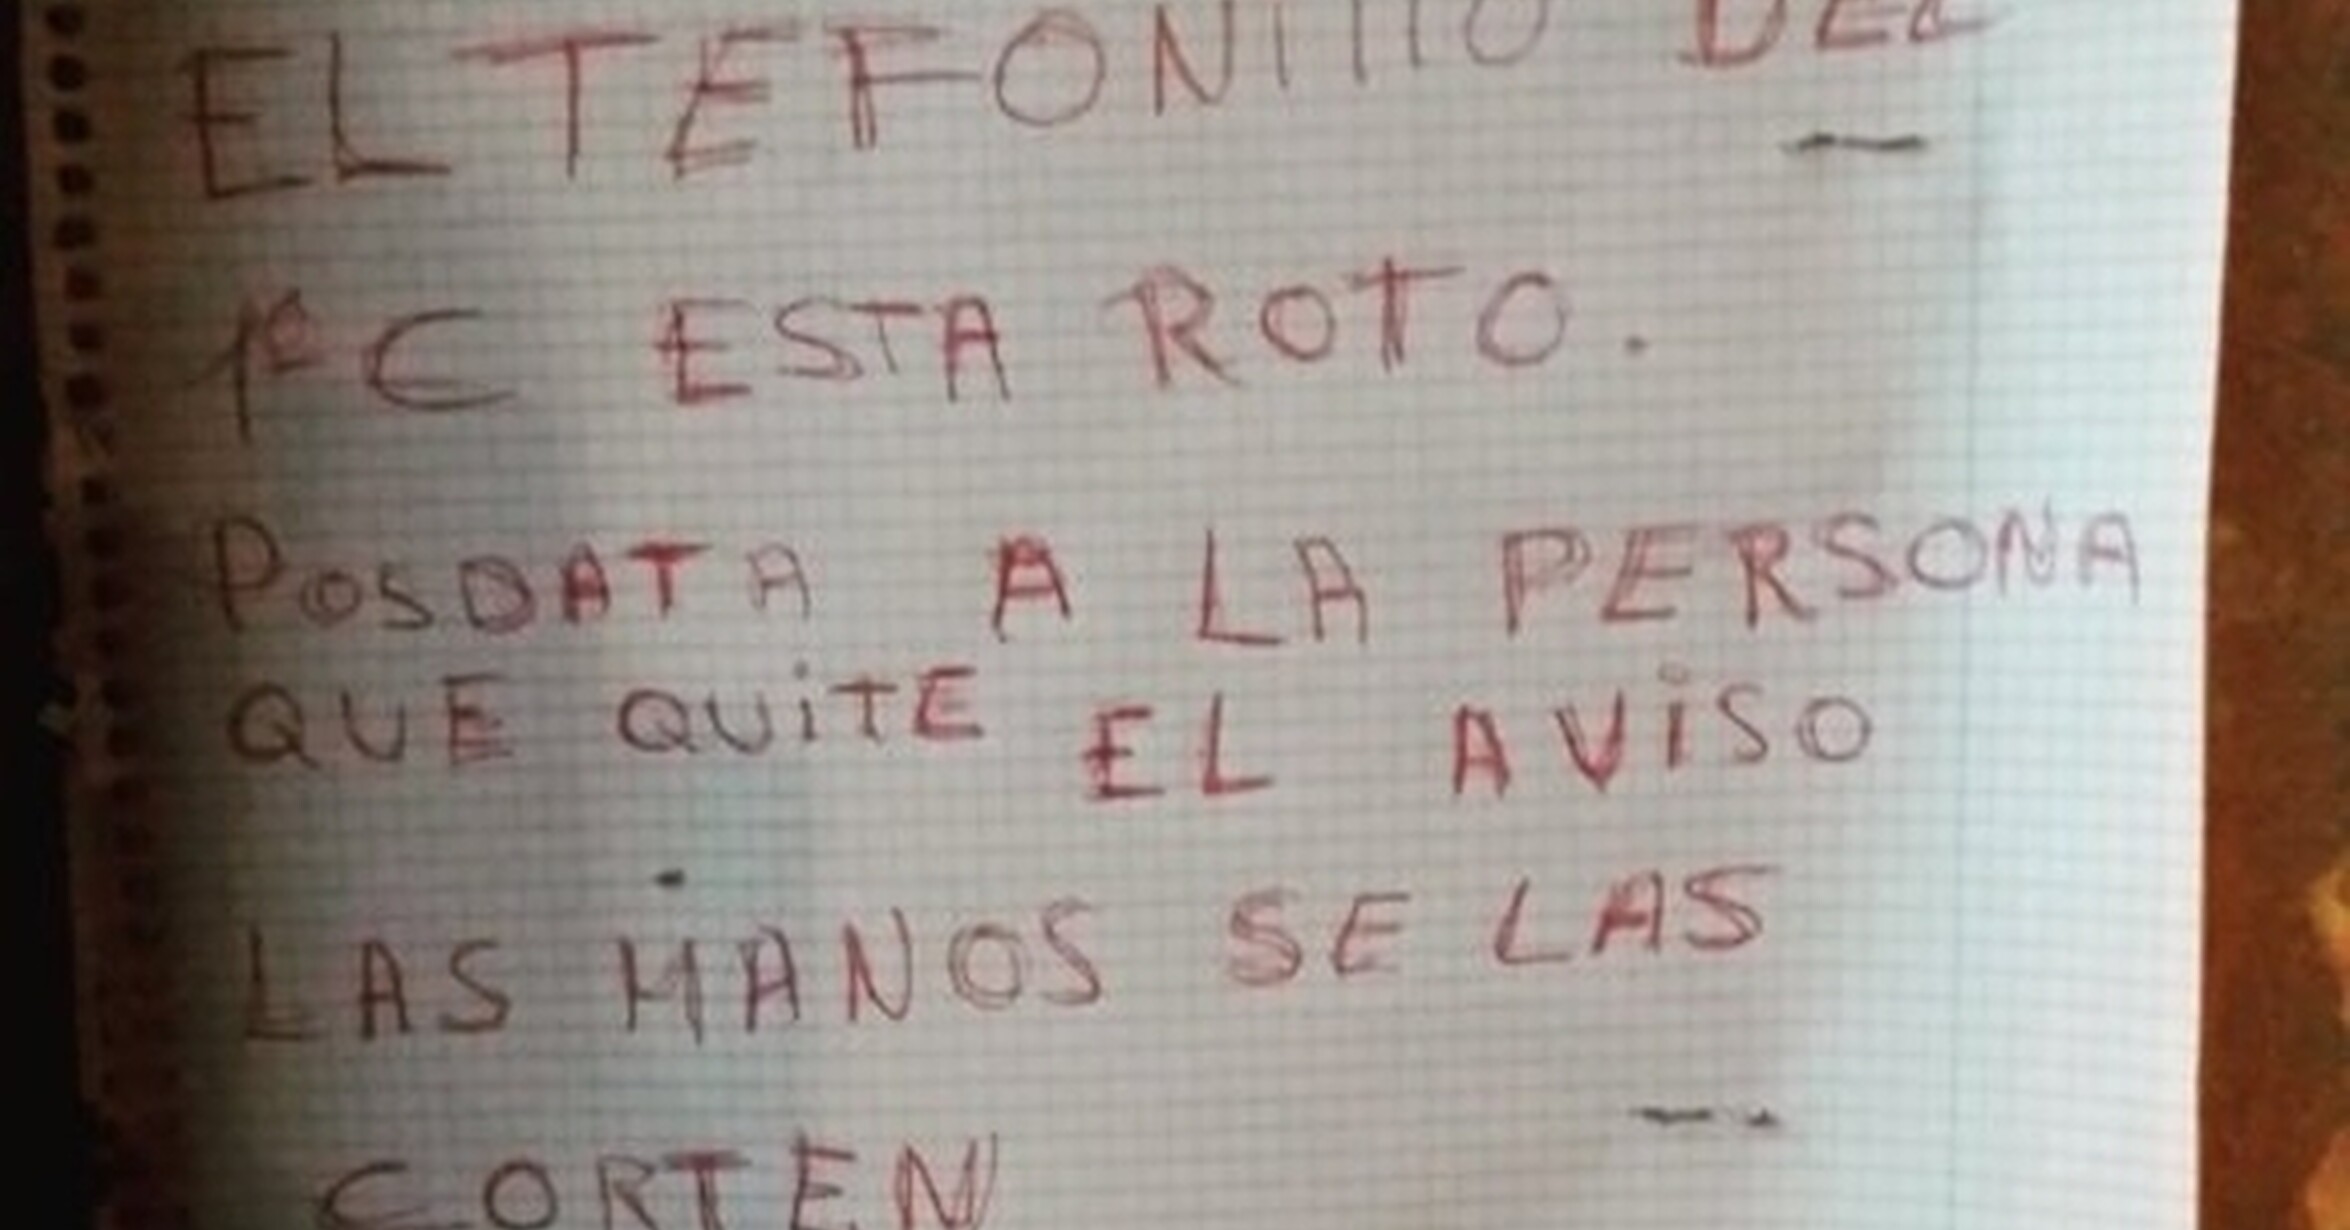 EL TEFONIllO DEL
1º C ESTA ROTO.
POSDATA A LA PERSONA
QUE QUiTE EL AViSO
LAS MANOS SE LAS
CORTEN